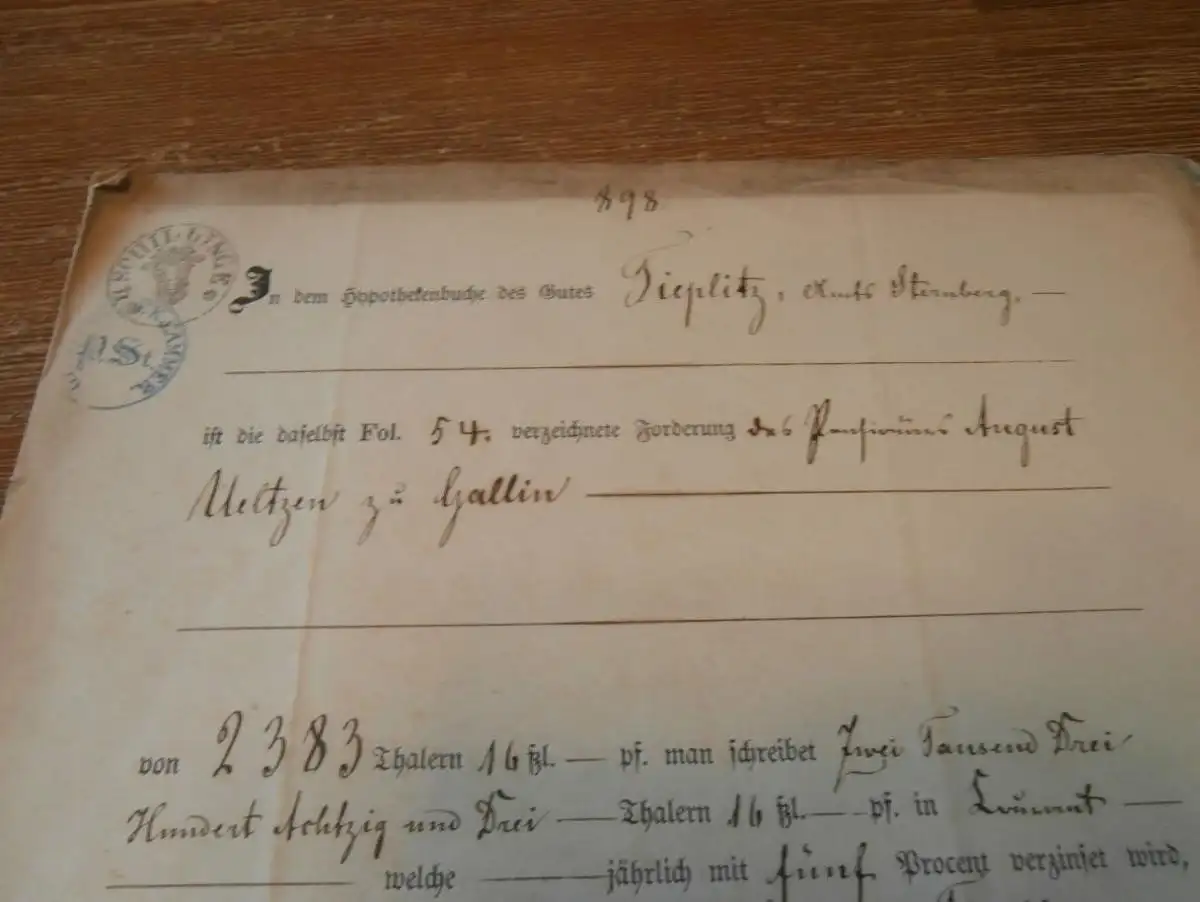 898
SCHILLINGE
KAMMER
In dem Hypothekenbuche des Gutes Tieplitz, Amts Sternberg. —
ist die daselbst Fol. 54. verzeichnete Forderung des Pensionairs August
Ueltzen zu Gallin —
von 2383 Thalern 16 ßl. — pf. man schreibet Zwei Tausend Drei
Hundert Achtzig und Drei — Thalern 16 ßl. — pf. in Courant —
— welche — jährlich mit fünf Procent verzinset wird,